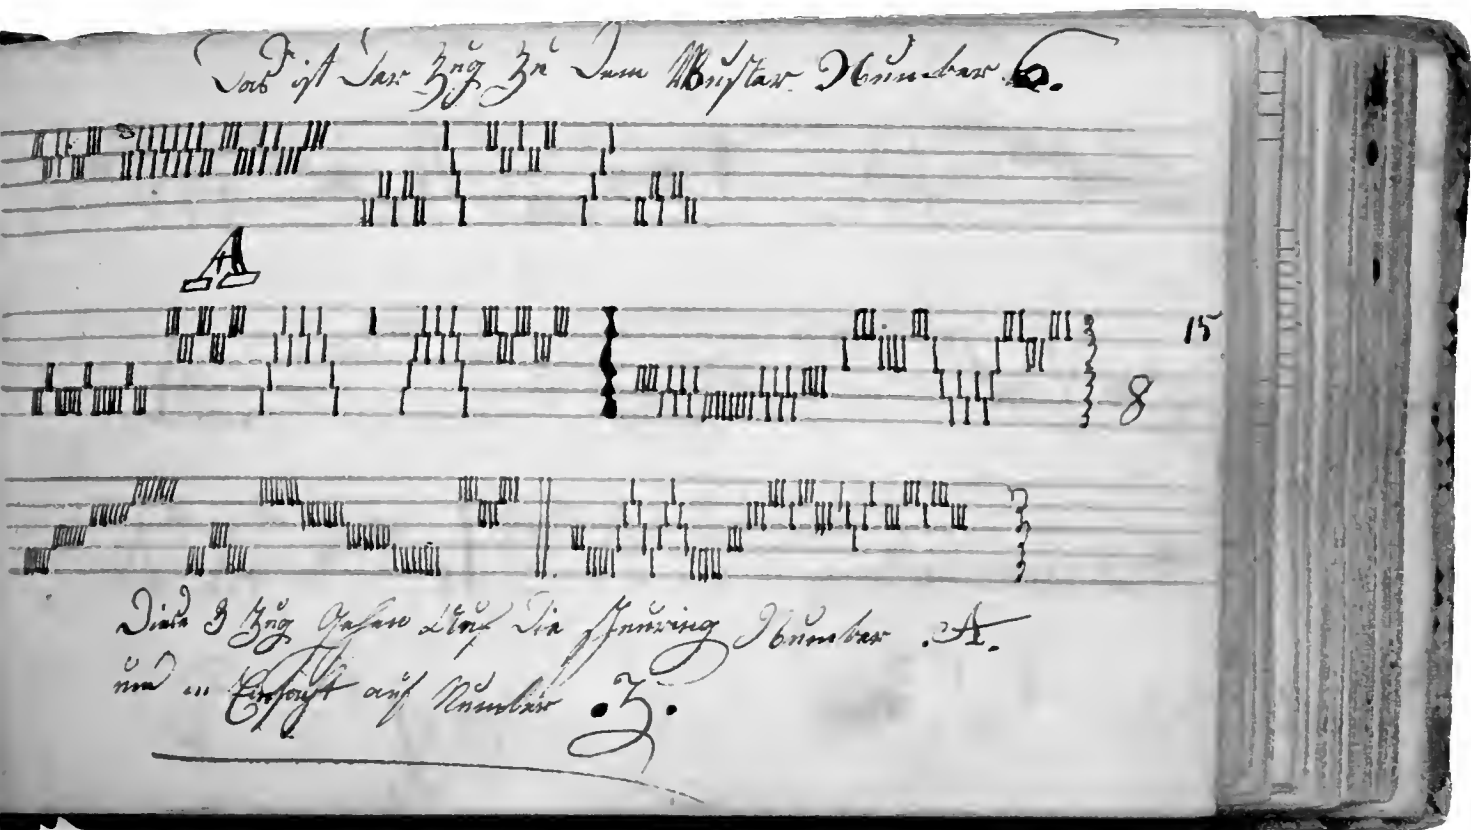 Das ist Der Zug Zu Dem Muster Number 6.
A
15
8
Diese 3 Zug Gehen Auf Die Number .A.
und auf Number .Z.